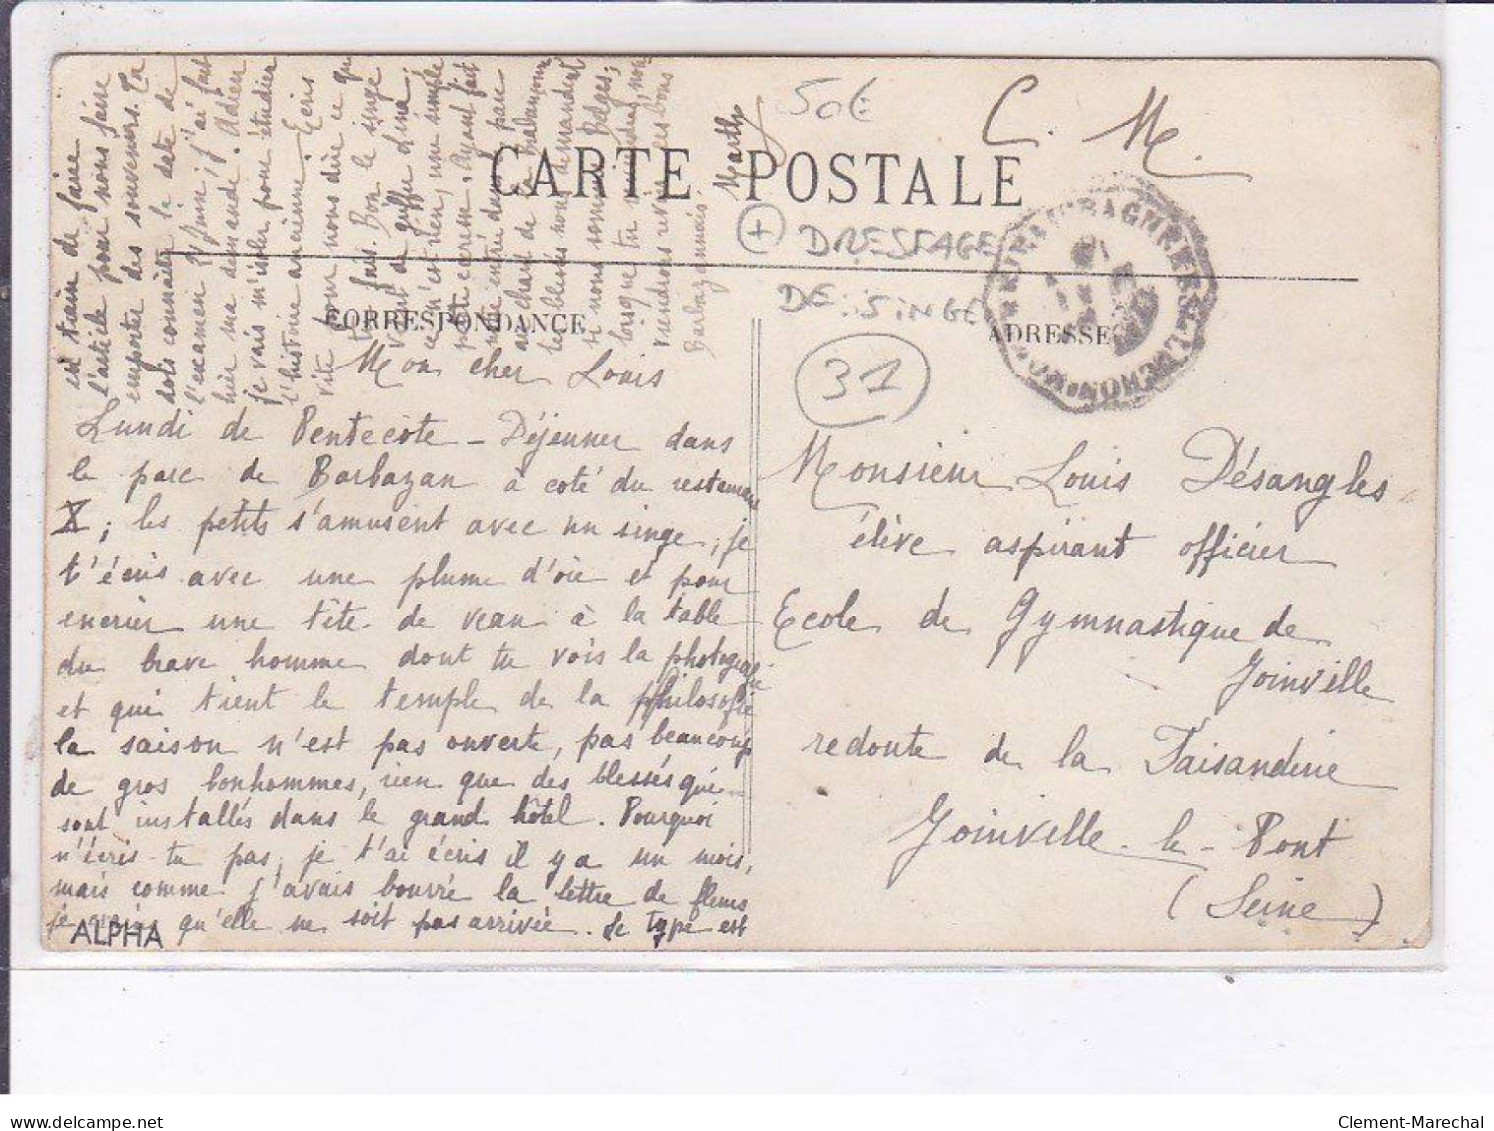 CARTE POSTALE
C. M.
50€
+ DRESSAGE
DE SINGE
31
CORRESPONDANCE
ADRESSE
Mon cher Louis
Lundi de Pentecôte - Déjeuner dans
le parc de Barbazan à coté du restaurant
X; les petits s'amusent avec un singe, je
t'écris avec une plume d'oie et pour
encrier une tête de veau à la table
du brave homme dont tu vois la photographie
et qui tient le temple de la philosofie
la saison n'est pas ouverte, pas beaucoup
de gros bonhommes, rien que des blessés qui
sont installés dans le grand hôtel. Pourquoi
n'écris-tu pas, je t'ai écris il y a un mois,
mais comme j'avais bourré la lettre de fleurs
je crains qu'elle ne soit pas arrivée. Le type est
ALPHA
en train de faire
l'article pour nous faire
emporter des souvenirs. Tu
dois connaître la date de
l'examen Juin; j'ai fait
hier ma demande. Adieu
je vais m'isoler pour étudier
l'histoire ancienne. Ecris
vite pour nous dire ce que
tu fais. Bon le singe
vient de
ce n'est rien, une simple
petite Ayant fait
mon entrée du parc
au chant de la brabançonne
les blessés nous demandent
si nous sommes Belges;
lorsque tu viendras, nous
viendrons revoir ces bons
Barbazannais
Marthe
Monsieur Louis Désangles
élève aspirant officier
Ecole de Gymnastique de
Joinville
redoute de la Faisanderie
Joinville-le-Pont
(Seine)
Clement-Marechal
www.delcampe.net